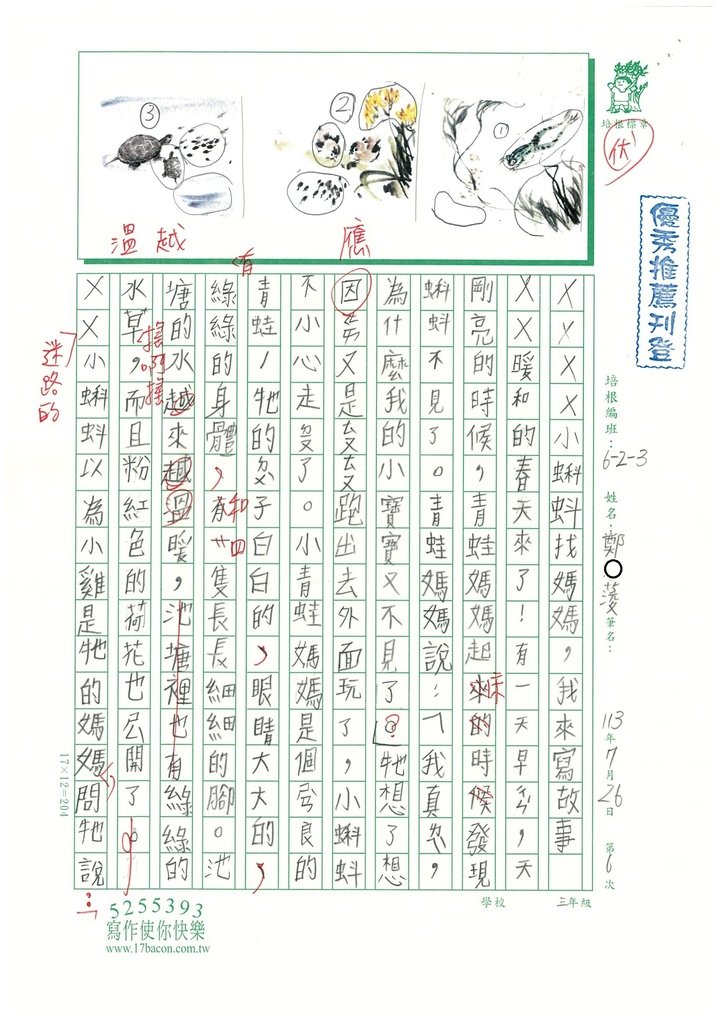 培根標章
優秀推薦刊登
③ ② ①
溫 越 應
培根編班：6-2-3 姓名：鄭○ 筆名：
113年7月26日 第6次
XXXX小蝌蚪找媽媽，我來寫故事
XX暖和的春天來了！有一天早，天
剛亮的時候，青蛙媽媽起來床的時候發現
蝌蚪不見了。青蛙媽媽說：「我真，
為什麼我的小寶寶又不見了？牠想了想
因又是跑出去外面玩了，小蝌蚪
不小心走了。小青蛙媽媽是個良的
青蛙，牠的子白白的，眼睛大大的，
有
綠綠的身體，有和四隻長長細細的腳。池
塘的水越來越溫暖，池塘裡也有綠綠的
搖啊搖
水草，而且粉紅色的荷花也公開了。
XX小蝌蚪以為小雞是牠的媽媽問牠說：「
迷路的
17×12=204
學校 三年級
5255393
寫作使你快樂
www.17bacon.com.tw